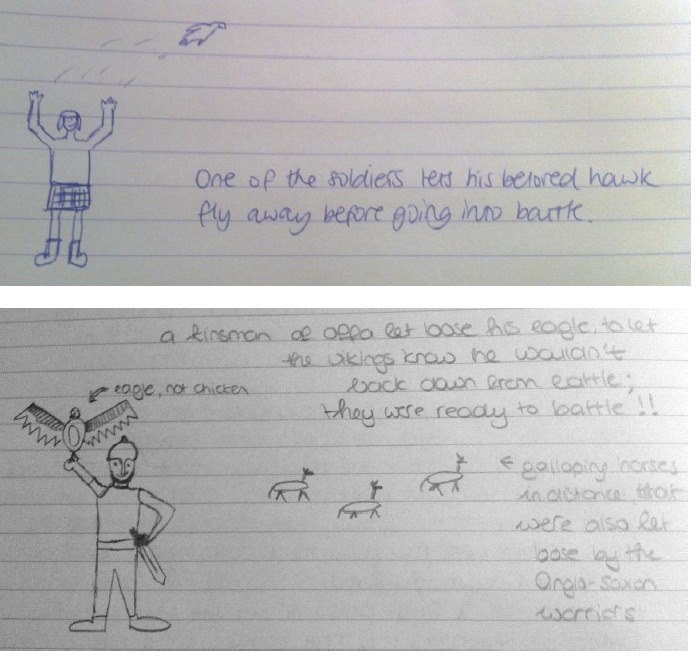 One of the soldiers lets his beloved hawk
fly away before going into battle.
a kinsman of offa let loose his eagle, to let
the vikings know he wouldn't
back down from battle;
they were ready to battle!!
eagle, not chicken
galloping horses
in distance that
were also let
loose by the
Anglo-Saxon
warriors